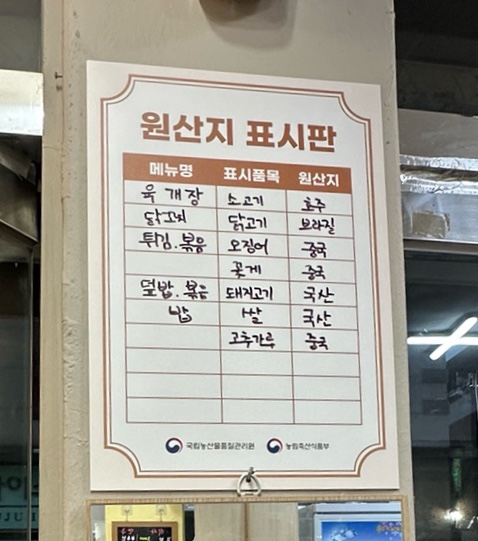 원산지 표시판
메뉴명 표시품목 원산지
육개장 소고기 호주
닭꼬치 닭고기 브라질
튀김.볶음 오징어 중국
꽃게 중국
덮밥.볶음 돼지고기 국산
밥 쌀 국산
고추가루 중국
국립농산물품질관리원 농림축산식품부